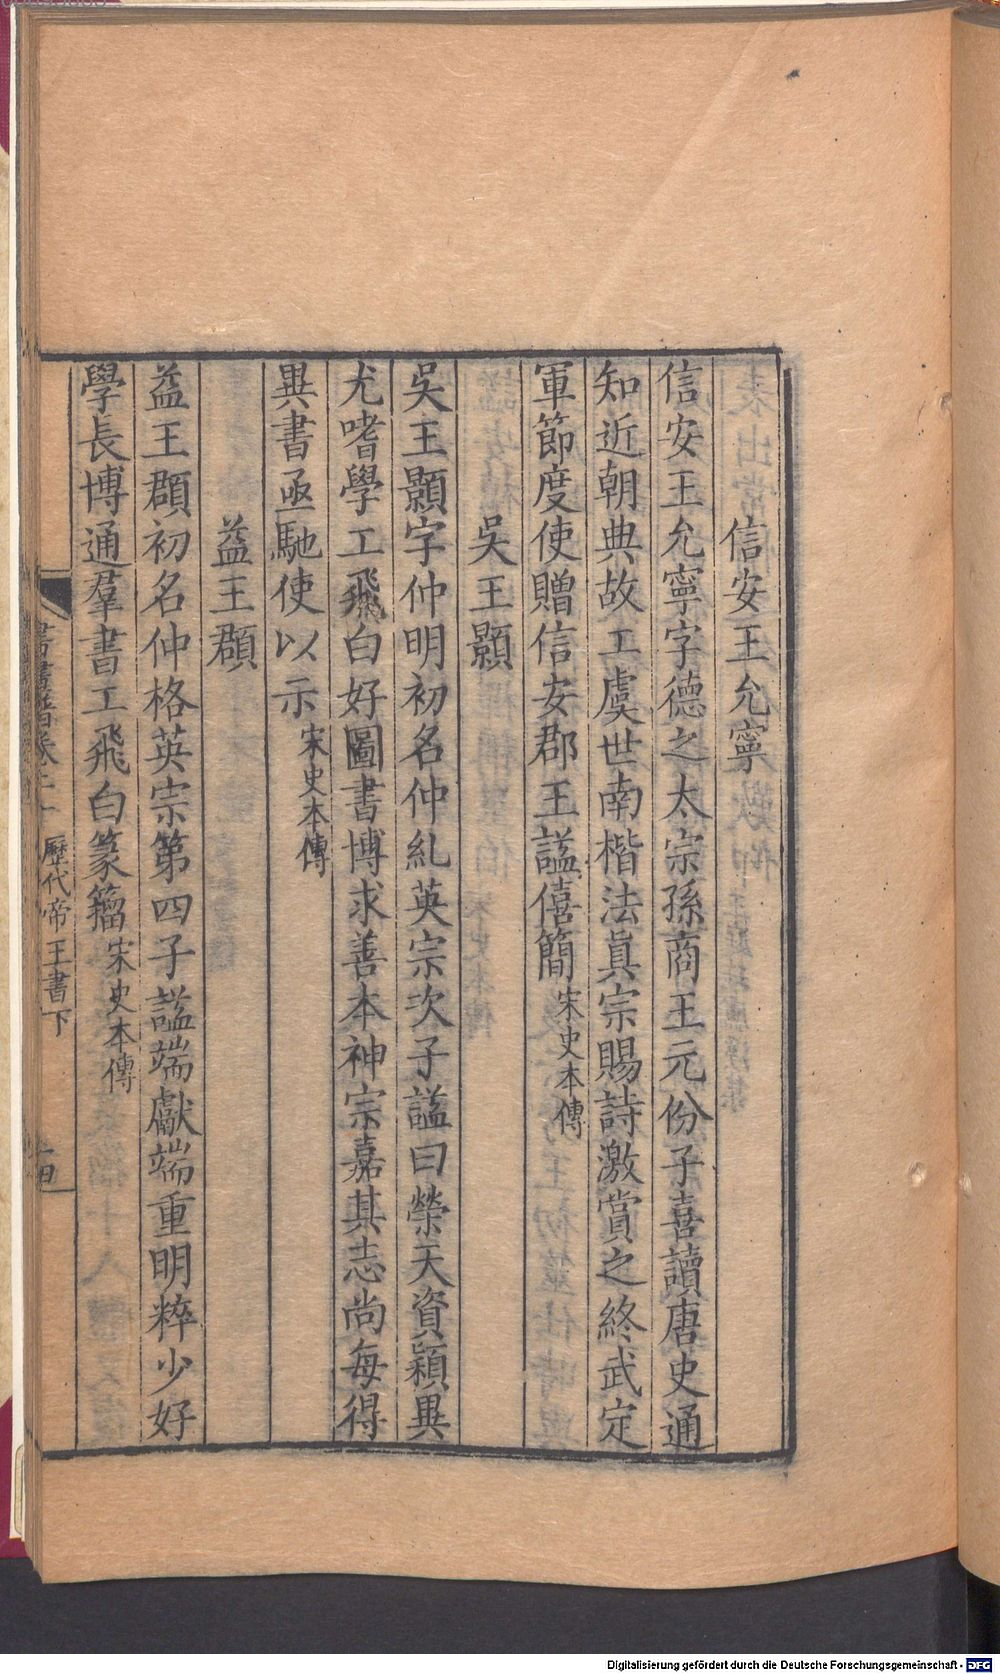 信安王允寧
信安王允寧字德之太宗孫商王元份子喜讀唐史通
知近朝典故工虞世南楷法眞宗賜詩激賞之終武定
軍節度使贈信安郡王謚僖簡宋史本傳
吳王顥
吳王顥字仲明初名仲糺英宗次子謚曰榮天資穎異
尤嗜學工飛白好圖書博求善本神宗嘉其志尚每得
異書亟馳使以示宋史本傳
益王頵
益王頵初名仲格英宗第四子謚端獻端重明粹少好
學長博通羣書工飛白篆籀宋史本傳
歷代帝王書下
Digitalisierung gefördert durch die Deutsche Forschungsgemeinschaft - DFG